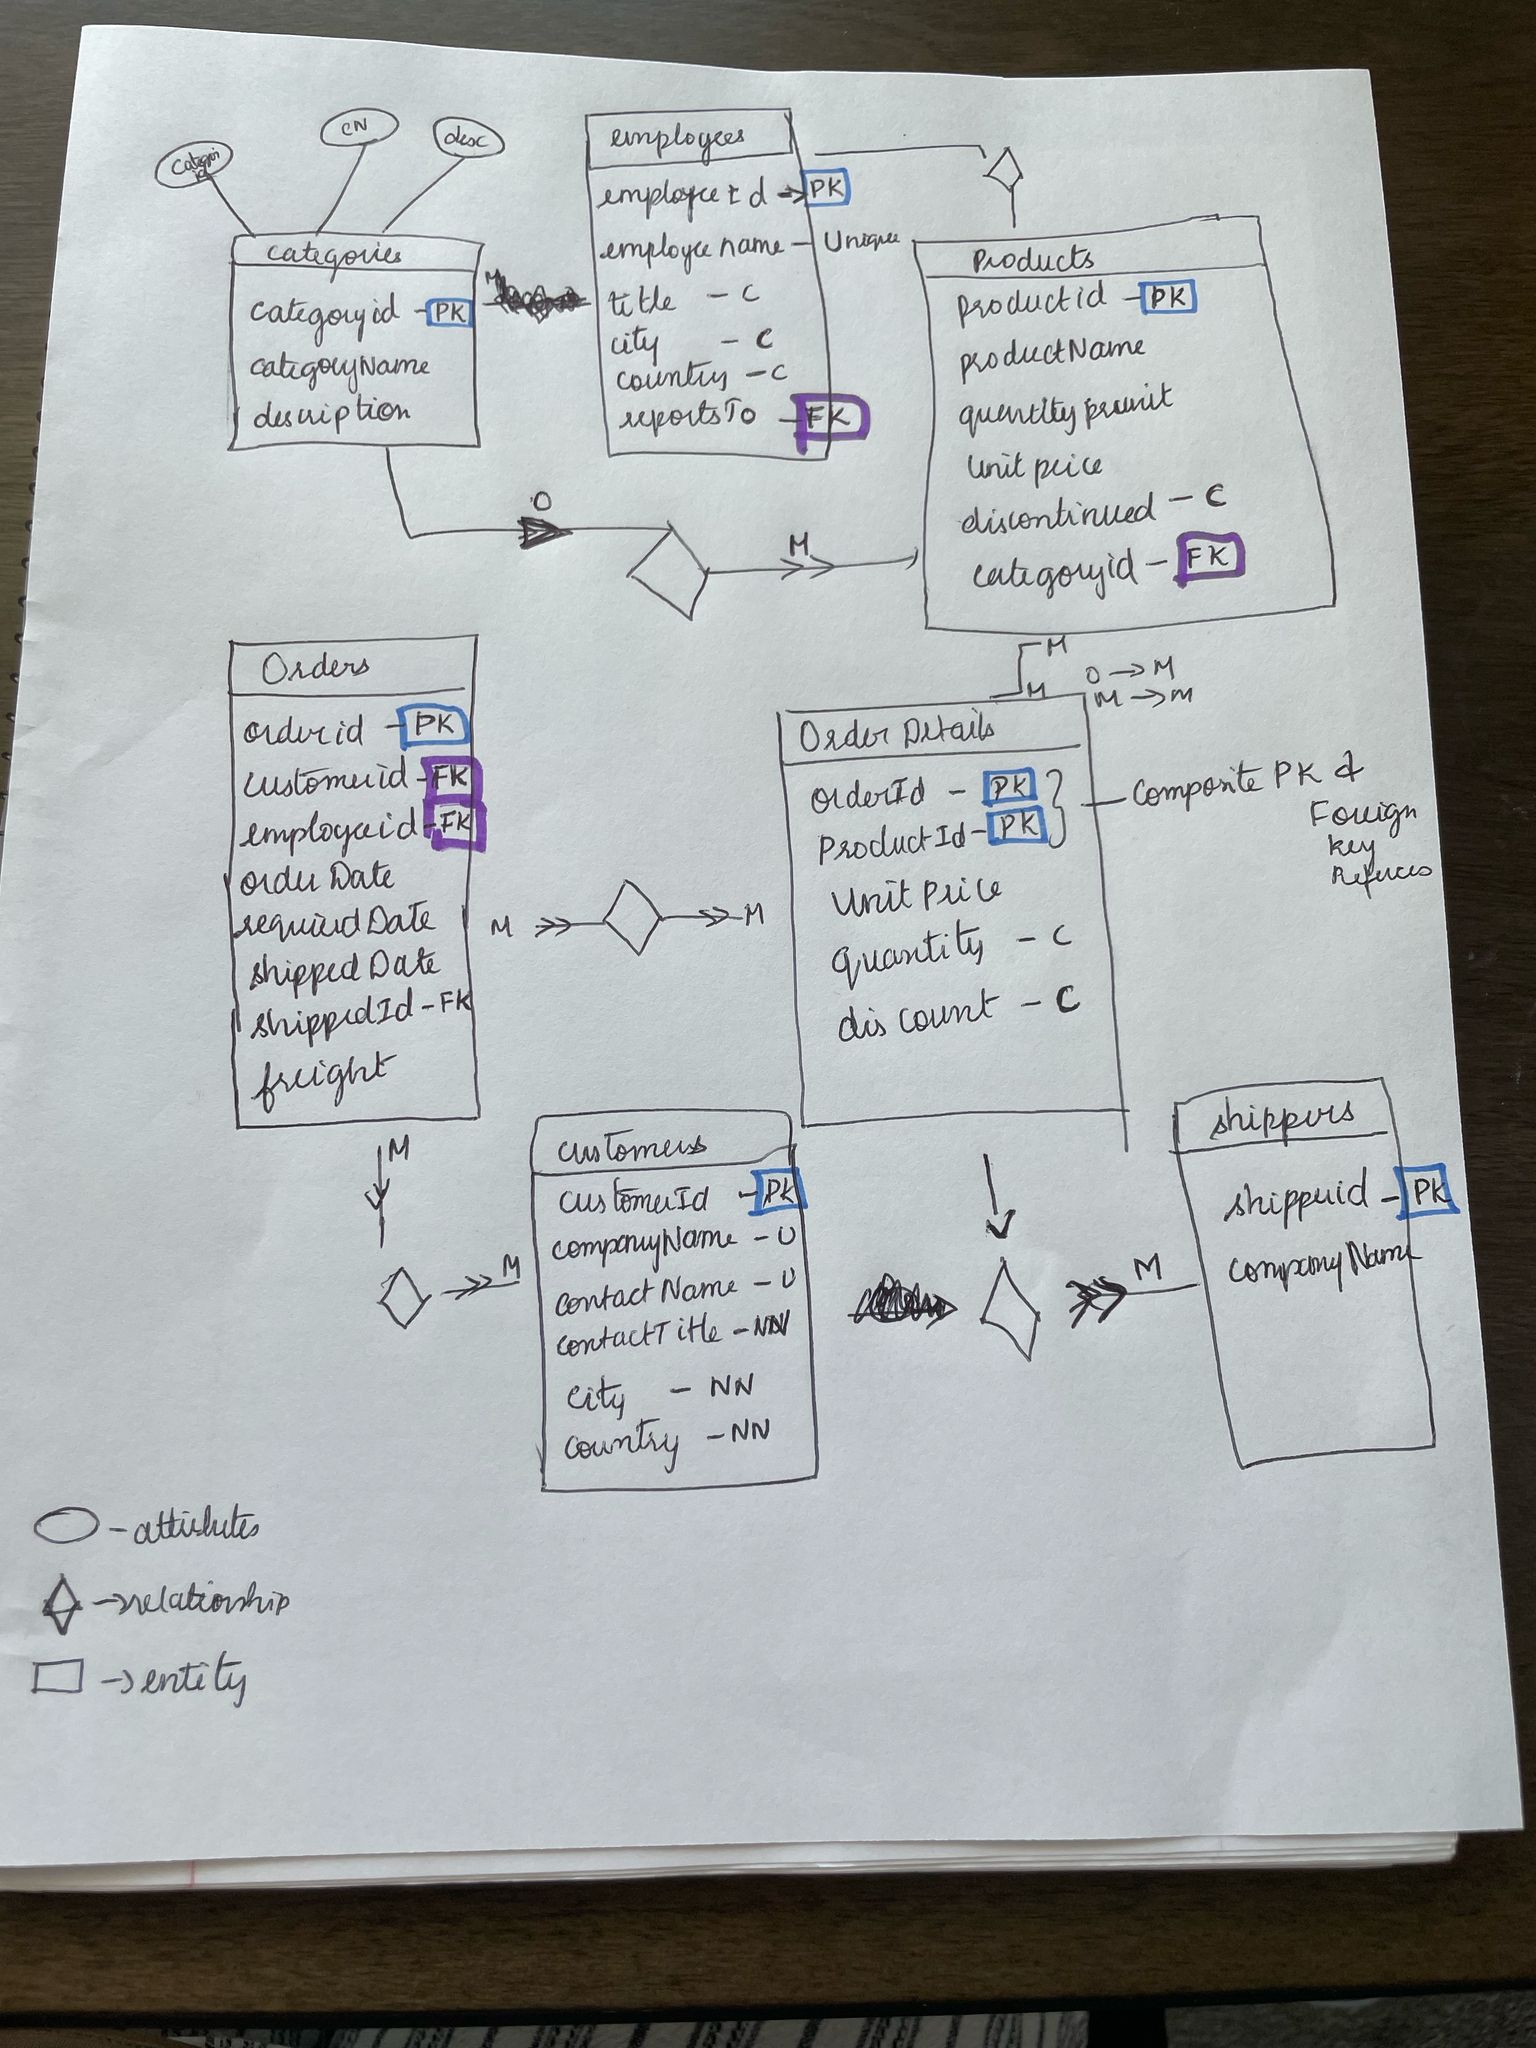 Categori id
CN
desc
categories
categoryid - PK
categoryName
description
M
employees
employeeId -> PK
employeename - Unique
title - C
city - C
country - C
reportsTo - FK
Products
productid - PK
productName
quantityprunit
unit price
discontinued - C
categoryid - FK
O
M
Orders
orderid - PK
customerid - FK
employeeid - FK
orderDate
requiredDate
shippedDate
shippedId - FK
freight
M
M
M
M
O -> M
M -> M
Order Details
orderId - PK
ProductId - PK
Composite PK &
Foreign
key
Unit Price
quantity - C
discount - C
M
M
customers
customerId - PK
companyName - U
contactName - U
contactTitle - NN
city - NN
country - NN
M
shippers
shipperid - PK
companyName
- attributes
-> relationship
-> entity